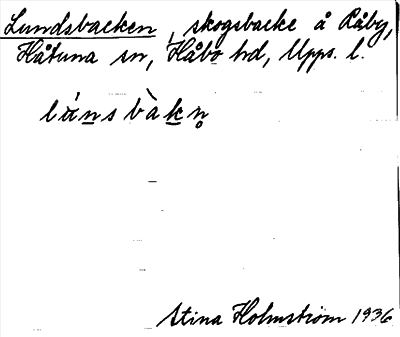 Lundsbacken, skogsbacke å Råby,
Håtuna sn, Håbo hd, Upps. l.
lúnsbàkn̥
Stina Holmström 1936